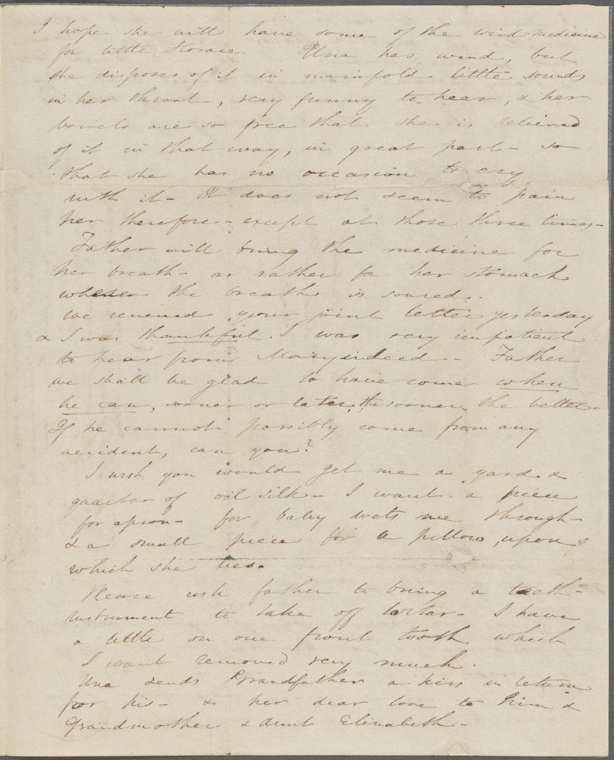 I hope she will have some of the wind-medicine
for little Horace. Una has wind, but
she disposes of it in manifold little sounds
in her throat, very funny to hear, & her
bowels are so free that she is relieved
of it in that way, in great part - so
that she has no occasion to cry
with it - It does not seem to pain
her therefore - except at those three times -
Father will bring the medicine for
her breath - or rather for her stomach
whence the breath is soured.
We received your joint letter yesterday
& I was thankful. I was very impatient
to hear from Mary indeed - Father
we shall be glad to have come when
he can, sooner or later, the sooner, the better -
If he cannot possibly come from any
accident, can you?
I wish you would get me a yard &
quarter of oil silk - I want a piece
for apron - for baby wets me through -
& a small piece for a pillow, upon
which she lies.
Please ask father to bring a tooth-
instrument to take off tartar - I have
a little on one front tooth which
I want removed very much.
Una sends Grandfather a kiss in return
for his - & her dear love to him &
Grandmother & Aunt Elizabeth -